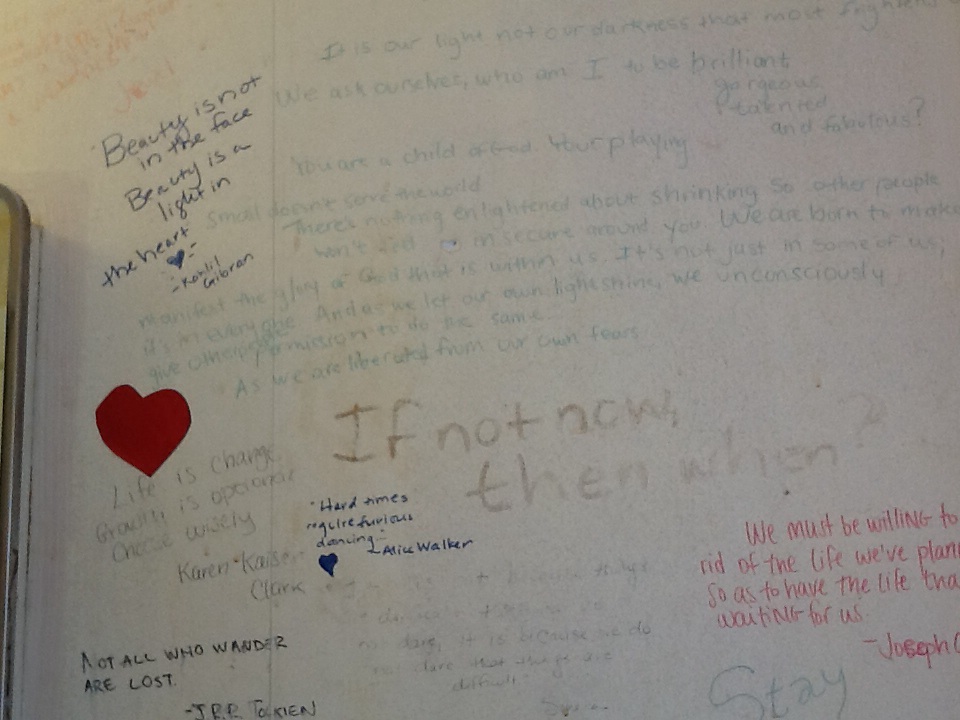 It is our light not our darkness that most frighten
We ask ourselves, who am I to be brilliant,
gorgeous
talented
and fabulous?
You are a child of God. Your playing
small doesn't serve the world
There's nothing enlightened about shrinking so other people
won't feel insecure around you. We are born to make
manifest the glory of God that is within us. It's not just in some of us;
it's in everyone. And as we let our own light shine, we unconsciously
give other people permission to do the same.
As we are liberated from our own fears
Jewel
Beauty is not
in the face
Beauty is a
light in
the heart
-Kahlil
Gibran
If not now,
then when?
Life is change
Growth is optional
Choose wisely
Karen Kaiser
Clark
"Hard times
require furious
dancing"
-Alice Walker
not because things
dare, it is because we do
not dare that things are
difficult.
We must be willing to
rid of the life we've plan
so as to have the life tha
waiting for us.
-Joseph C
NOT ALL WHO WANDER
ARE LOST.
-J.R.R. TOLKIEN
Stay